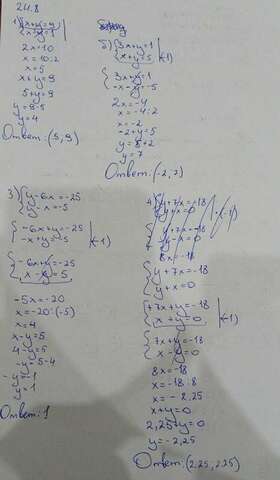 24.8
1) {x+y=9
x-y=1
2x=10
x=10:2
x=5
x+y=9
5+y=9
y=9-5
y=4
Ответ: (5,9)
б) {3x+y=1
x+y=5 |(-1)
{3x+y=1
-x-y=-5
2x=-4
x=-4:2
x=-2
-2+y=5
y=5+2
y=7
Ответ: (-2,7)
3) {y-6x=-25
y-x=-5
{-6x+y=-25
-x+y=-5 |(-1)
{-6x+y=-25
x-y=5
-5x=-20
x=-20:(-5)
x=4
x-y=5
4-y=5
-y=5-4
-y=1
y=1
Ответ: 1
4) {y+7x=-18
y+x=0 |(-1)
{y+7x=-18
-y-x=0
8x=-18
{y+7x=-18
y+x=0
{+7x+y=-18
x+y=0 |(-1)
{7x+y=-18
x-y=0
8x=-18
x=-18:8
x=-2,25
x+y=0
2,25+y=0
y=-2,25
Ответ: (2,25, 2,25)